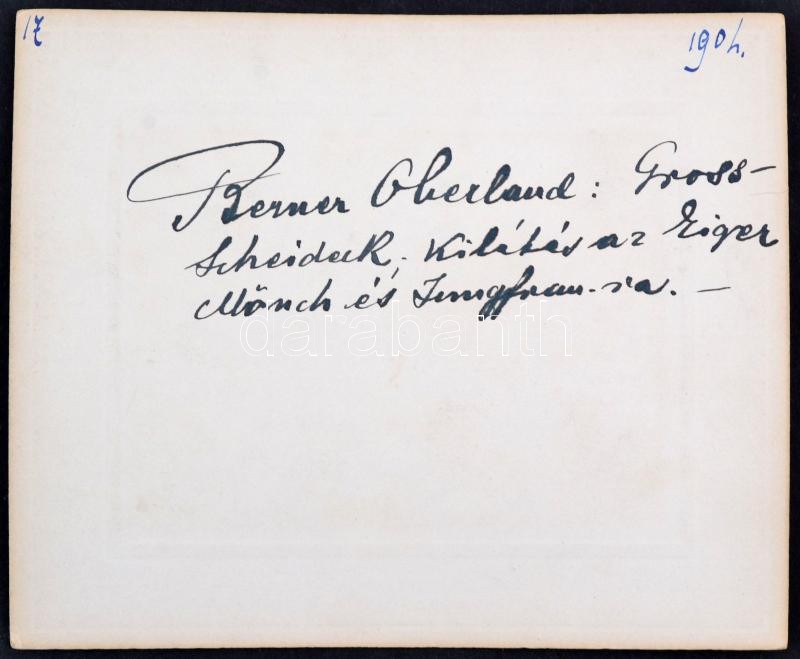 17
1904.
Berner Oberland: Gross-
Scheideck. Kilátás az Eiger
Mönch és Jungfrau-ra. —
darabanth